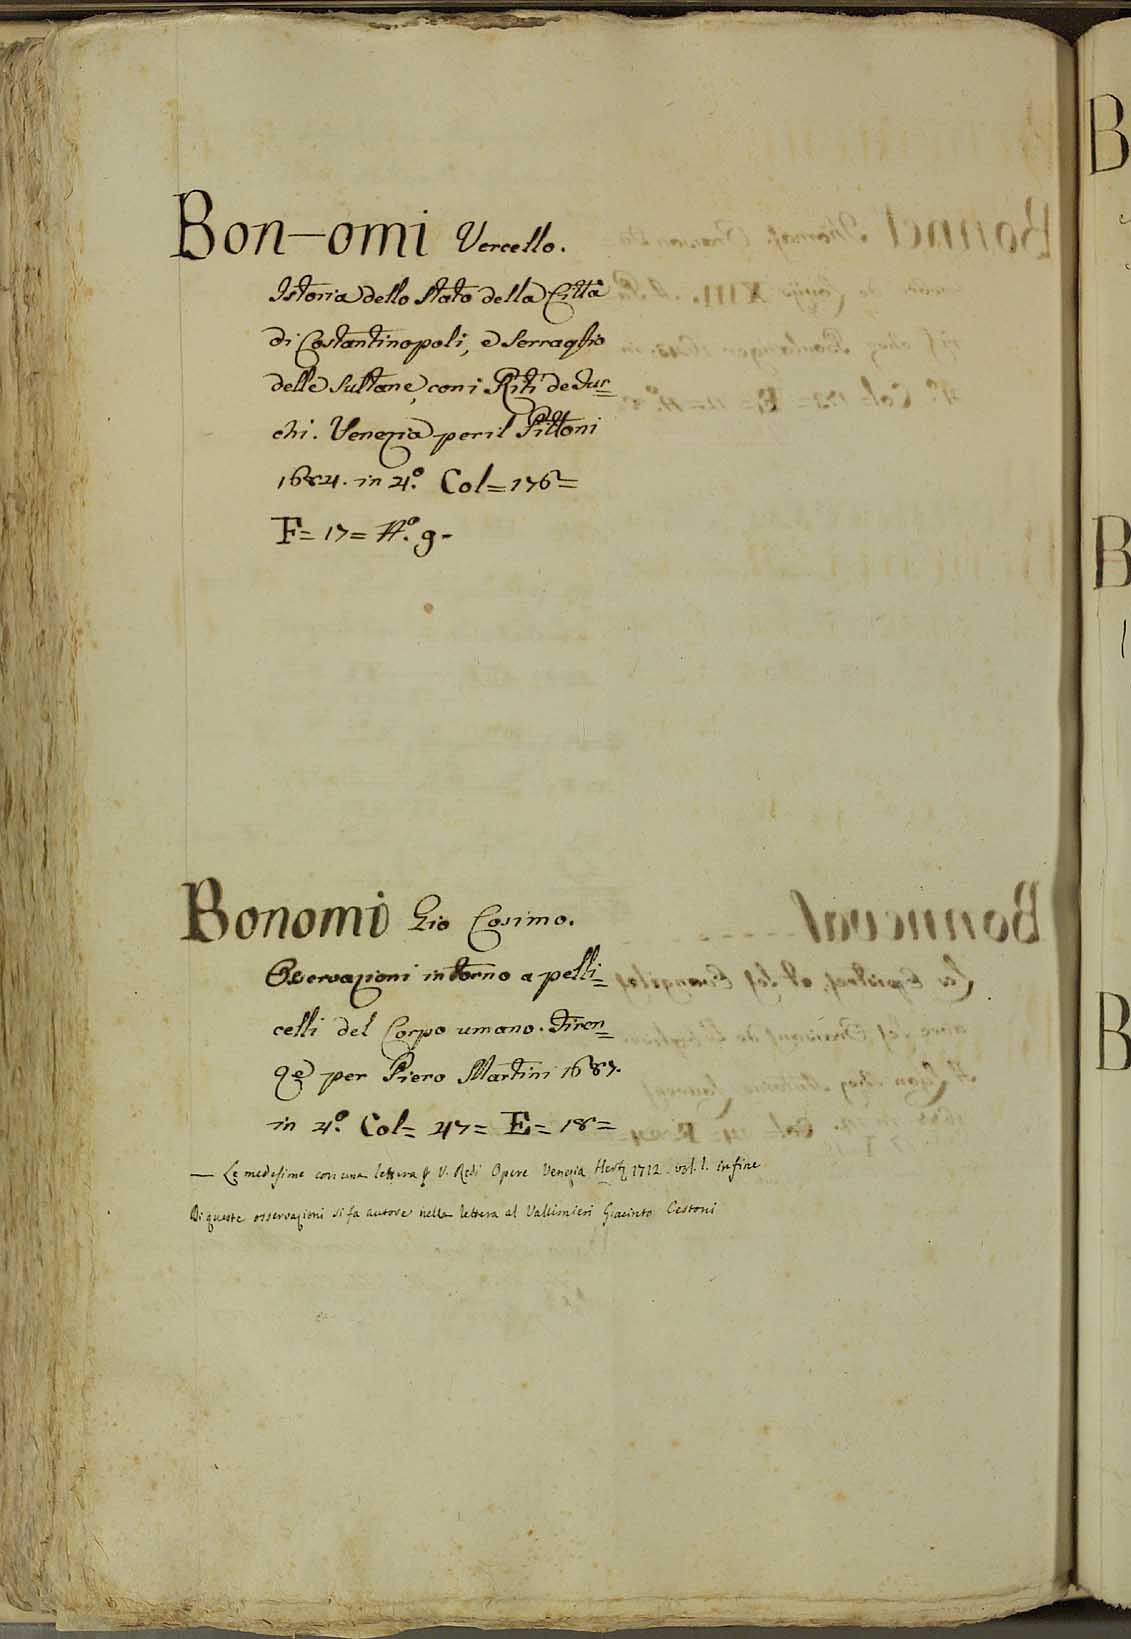 Bon-omi Vercello.
Istoria dello stato della Città
di Costantinopoli, e Serraglio
delle Sultane, con i Riti de Tur=
chi. Venezia per il Pittoni
1684. in 4.° Col= 176=
F= 17= N.° 9-
Bonomi Gio Cosimo.
Osservazioni intorno a pelli=
celli del Corpo umano. Firen=
ze per Piero Martini 1687.
in 4.° Col= 47= E= 18=
— Le medesime con una lettera V. Redi Opere Venezia Hertz 1712. vol. I. in fine
Di queste osservazioni si fa autore nella lettera al Vallisnieri Giacinto Cestoni